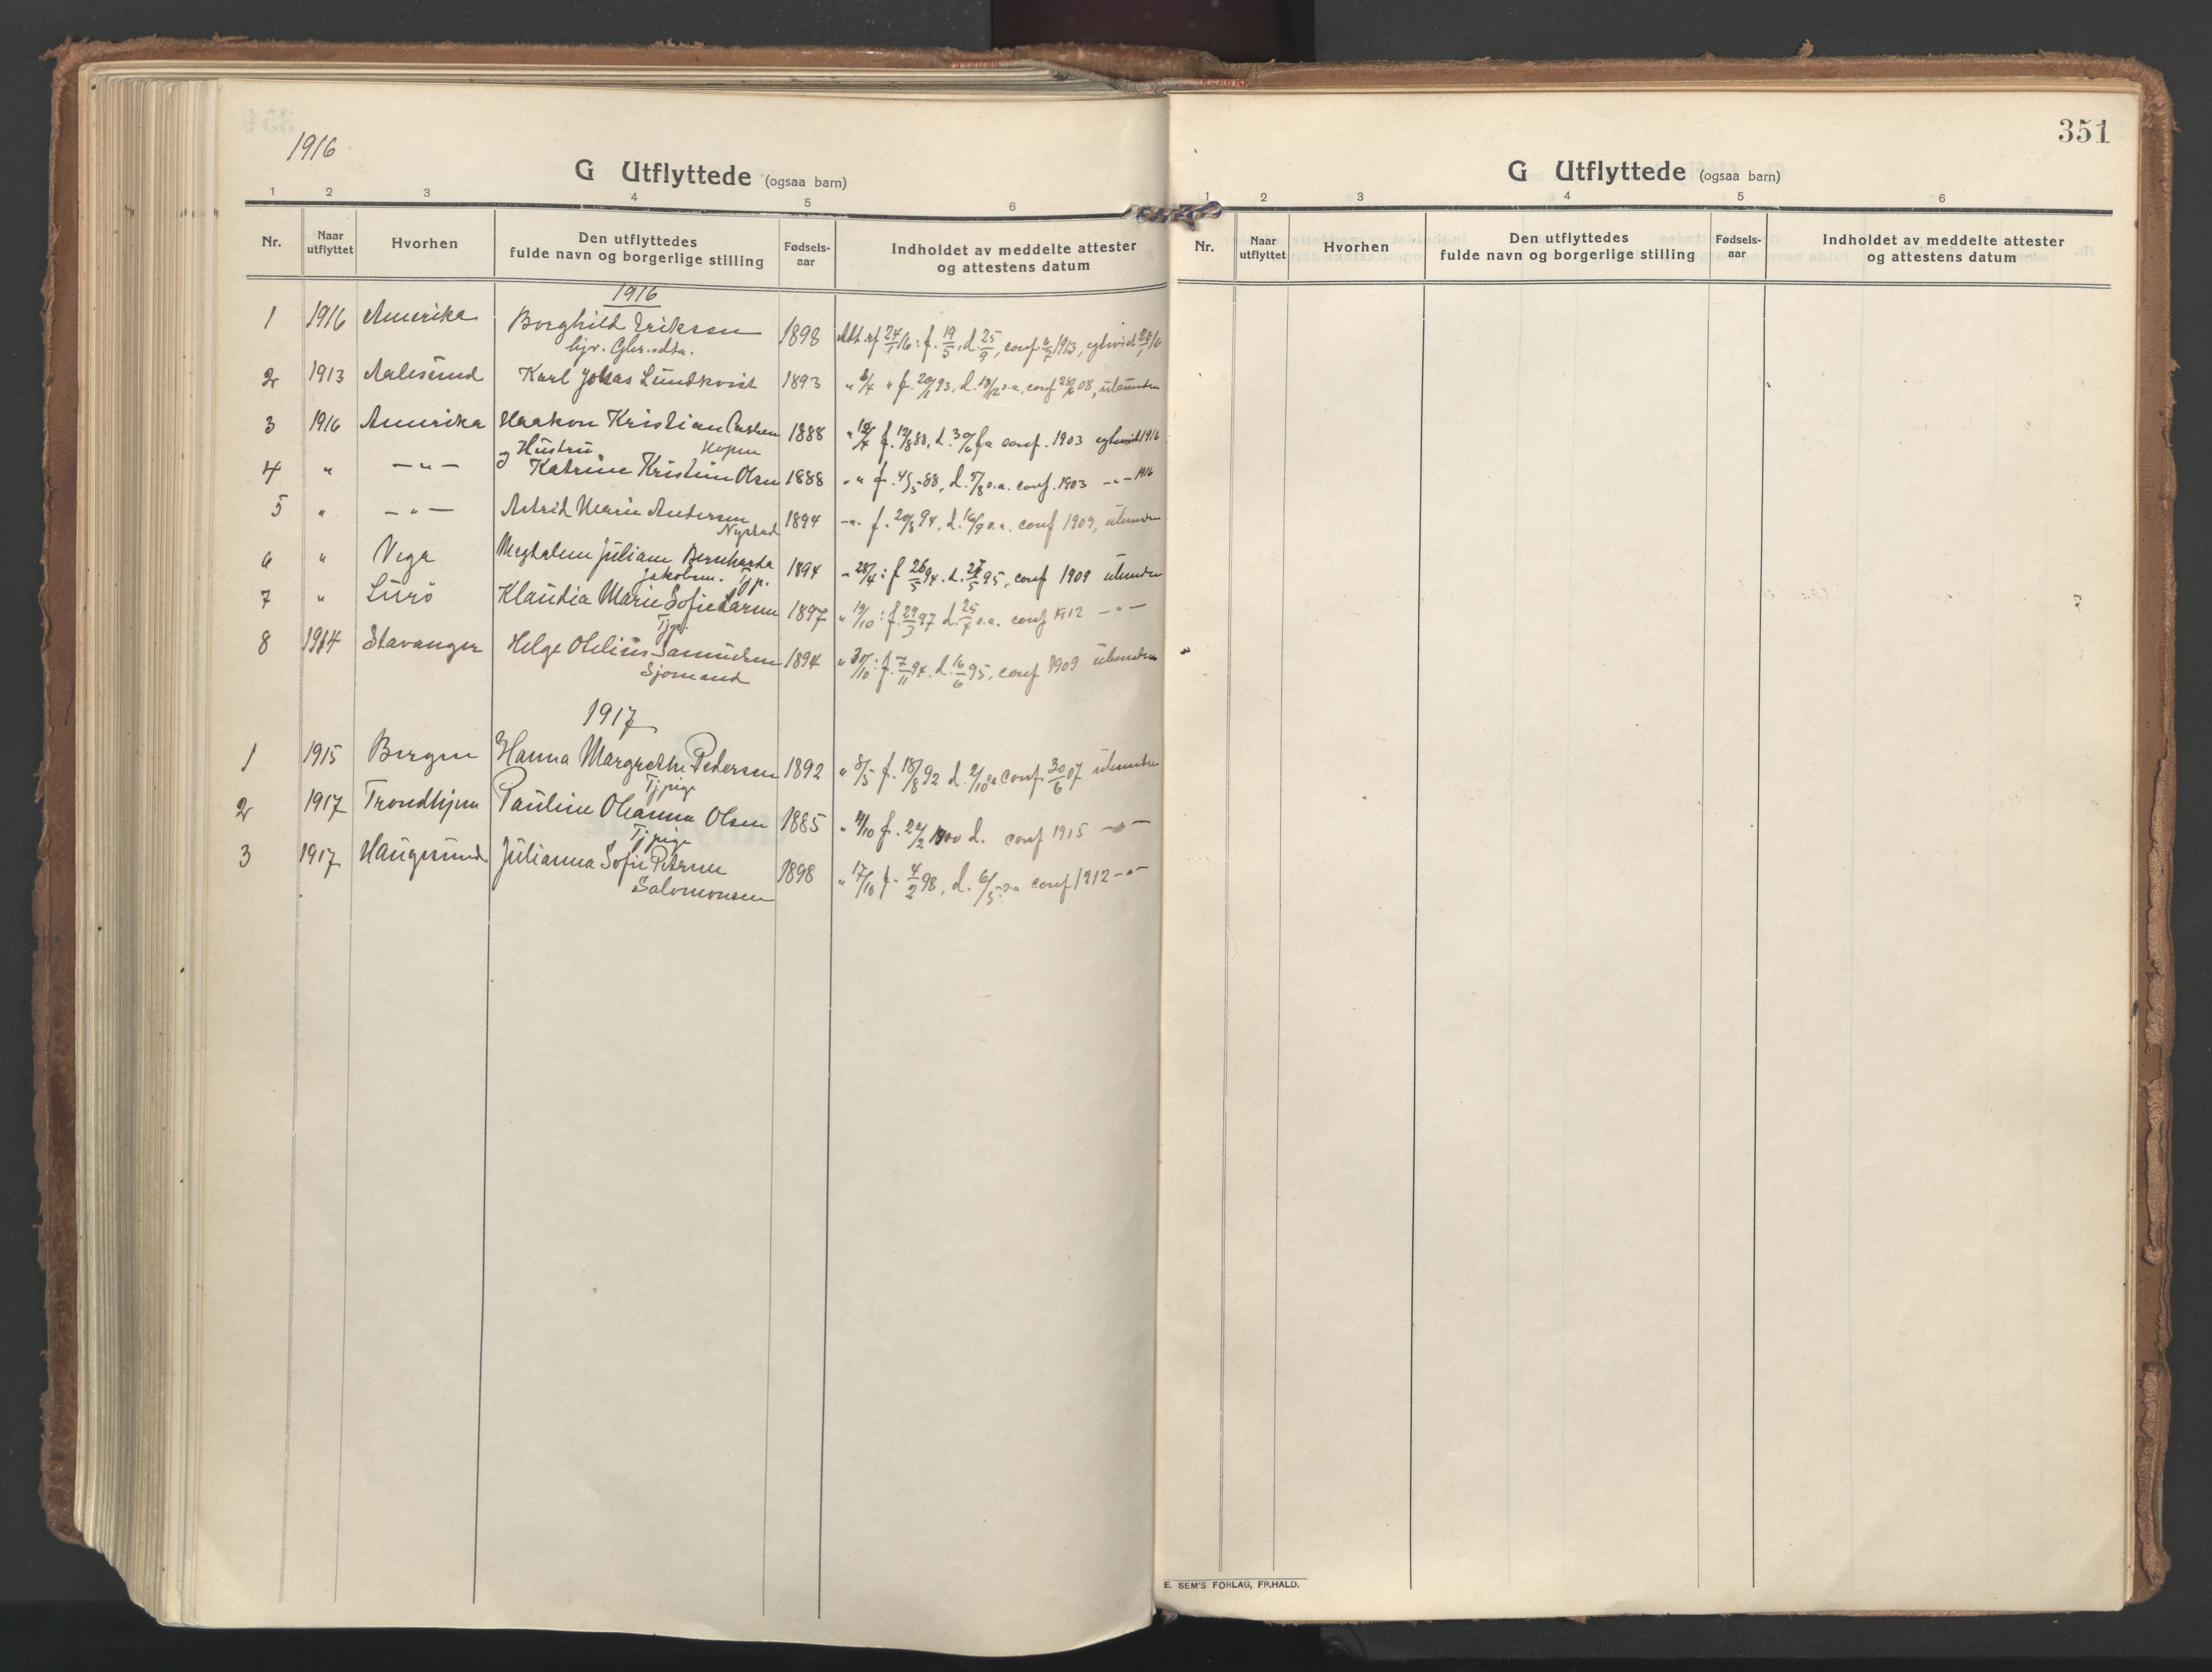 1916
G Utflyttede (ogsaa barn)
1 2 3 4 5 6
Nr. Naar utflyttet Hvorhen Den utflyttedes fulde navn og borgerlige stilling Fødsels-aar Indholdet av meddelte attester og attestens datum
1916
1 1916 Amerika Borghild Eriksen 1898 Att. af 24/1 16: f. 19/5, d. 25/9, conf. 6/7 1913,
2 1913 Aalesund Karl Johas Lundkvist 1893 " 6/4 " f. 20/1 93, d. 18/12 s.a. conf 28/6 08,
3 1916 Amerika Haakon Kristian 1888 f. 12/8 88, d. 30/6 conf. 1903 1916
og Hustru
4 " — " — Katrine Kristine Olsen 1888 " " f. 4/5 - 88, d. 5/8 s.a. conf. 1903 — " — 1916
5 " — " — Astrid Marie Andersen 1894 f. 20/8 94, d. 16/9 s.a. conf 1909,
Nystad
6 " Vega Juliane Bernharda 1894 " 28/4: f 26/5 94. d. 27/5 95, conf 1909
Jakobsen. Tjp.
7 " Lurö Klaudia Marie Sofie Larsen 1897 " 19/10: f. 29/3 97 d. 25/7 s.a. conf 1912 — " —
Tjp.
8 1914 Stavanger Helge Otelius Samuelsen 1894 " 30/10: f. 7/11 94. d. 16/6 95, conf 1909
Sjømand
1917
1 1915 Bergen Hanna Margrethe Pedersen 1892 " 8/5 f. 18/8 92 d. 2/10 s.a conf. 30/6 07
Tjpige
2 1917 Trondhjem Pauline Oleanna Olsen 1885 " 4/10 f. 22/2 1900 d. conf 1915 — " —
Tjpige
3 1917 Haugesund Julianna Sofie Petrine 1898 " 17/10 f. 4/2 98, d. 6/5 s.a conf 1912 — " —
Salomonsen
351
G Utflyttede (ogsaa barn)
1 2 3 4 5 6
Nr. Naar utflyttet Hvorhen Den utflyttedes fulde navn og borgerlige stilling Fødsels-aar Indholdet av meddelte attester og attestens datum
E. SEM'S FORLAG, FR.HALD.